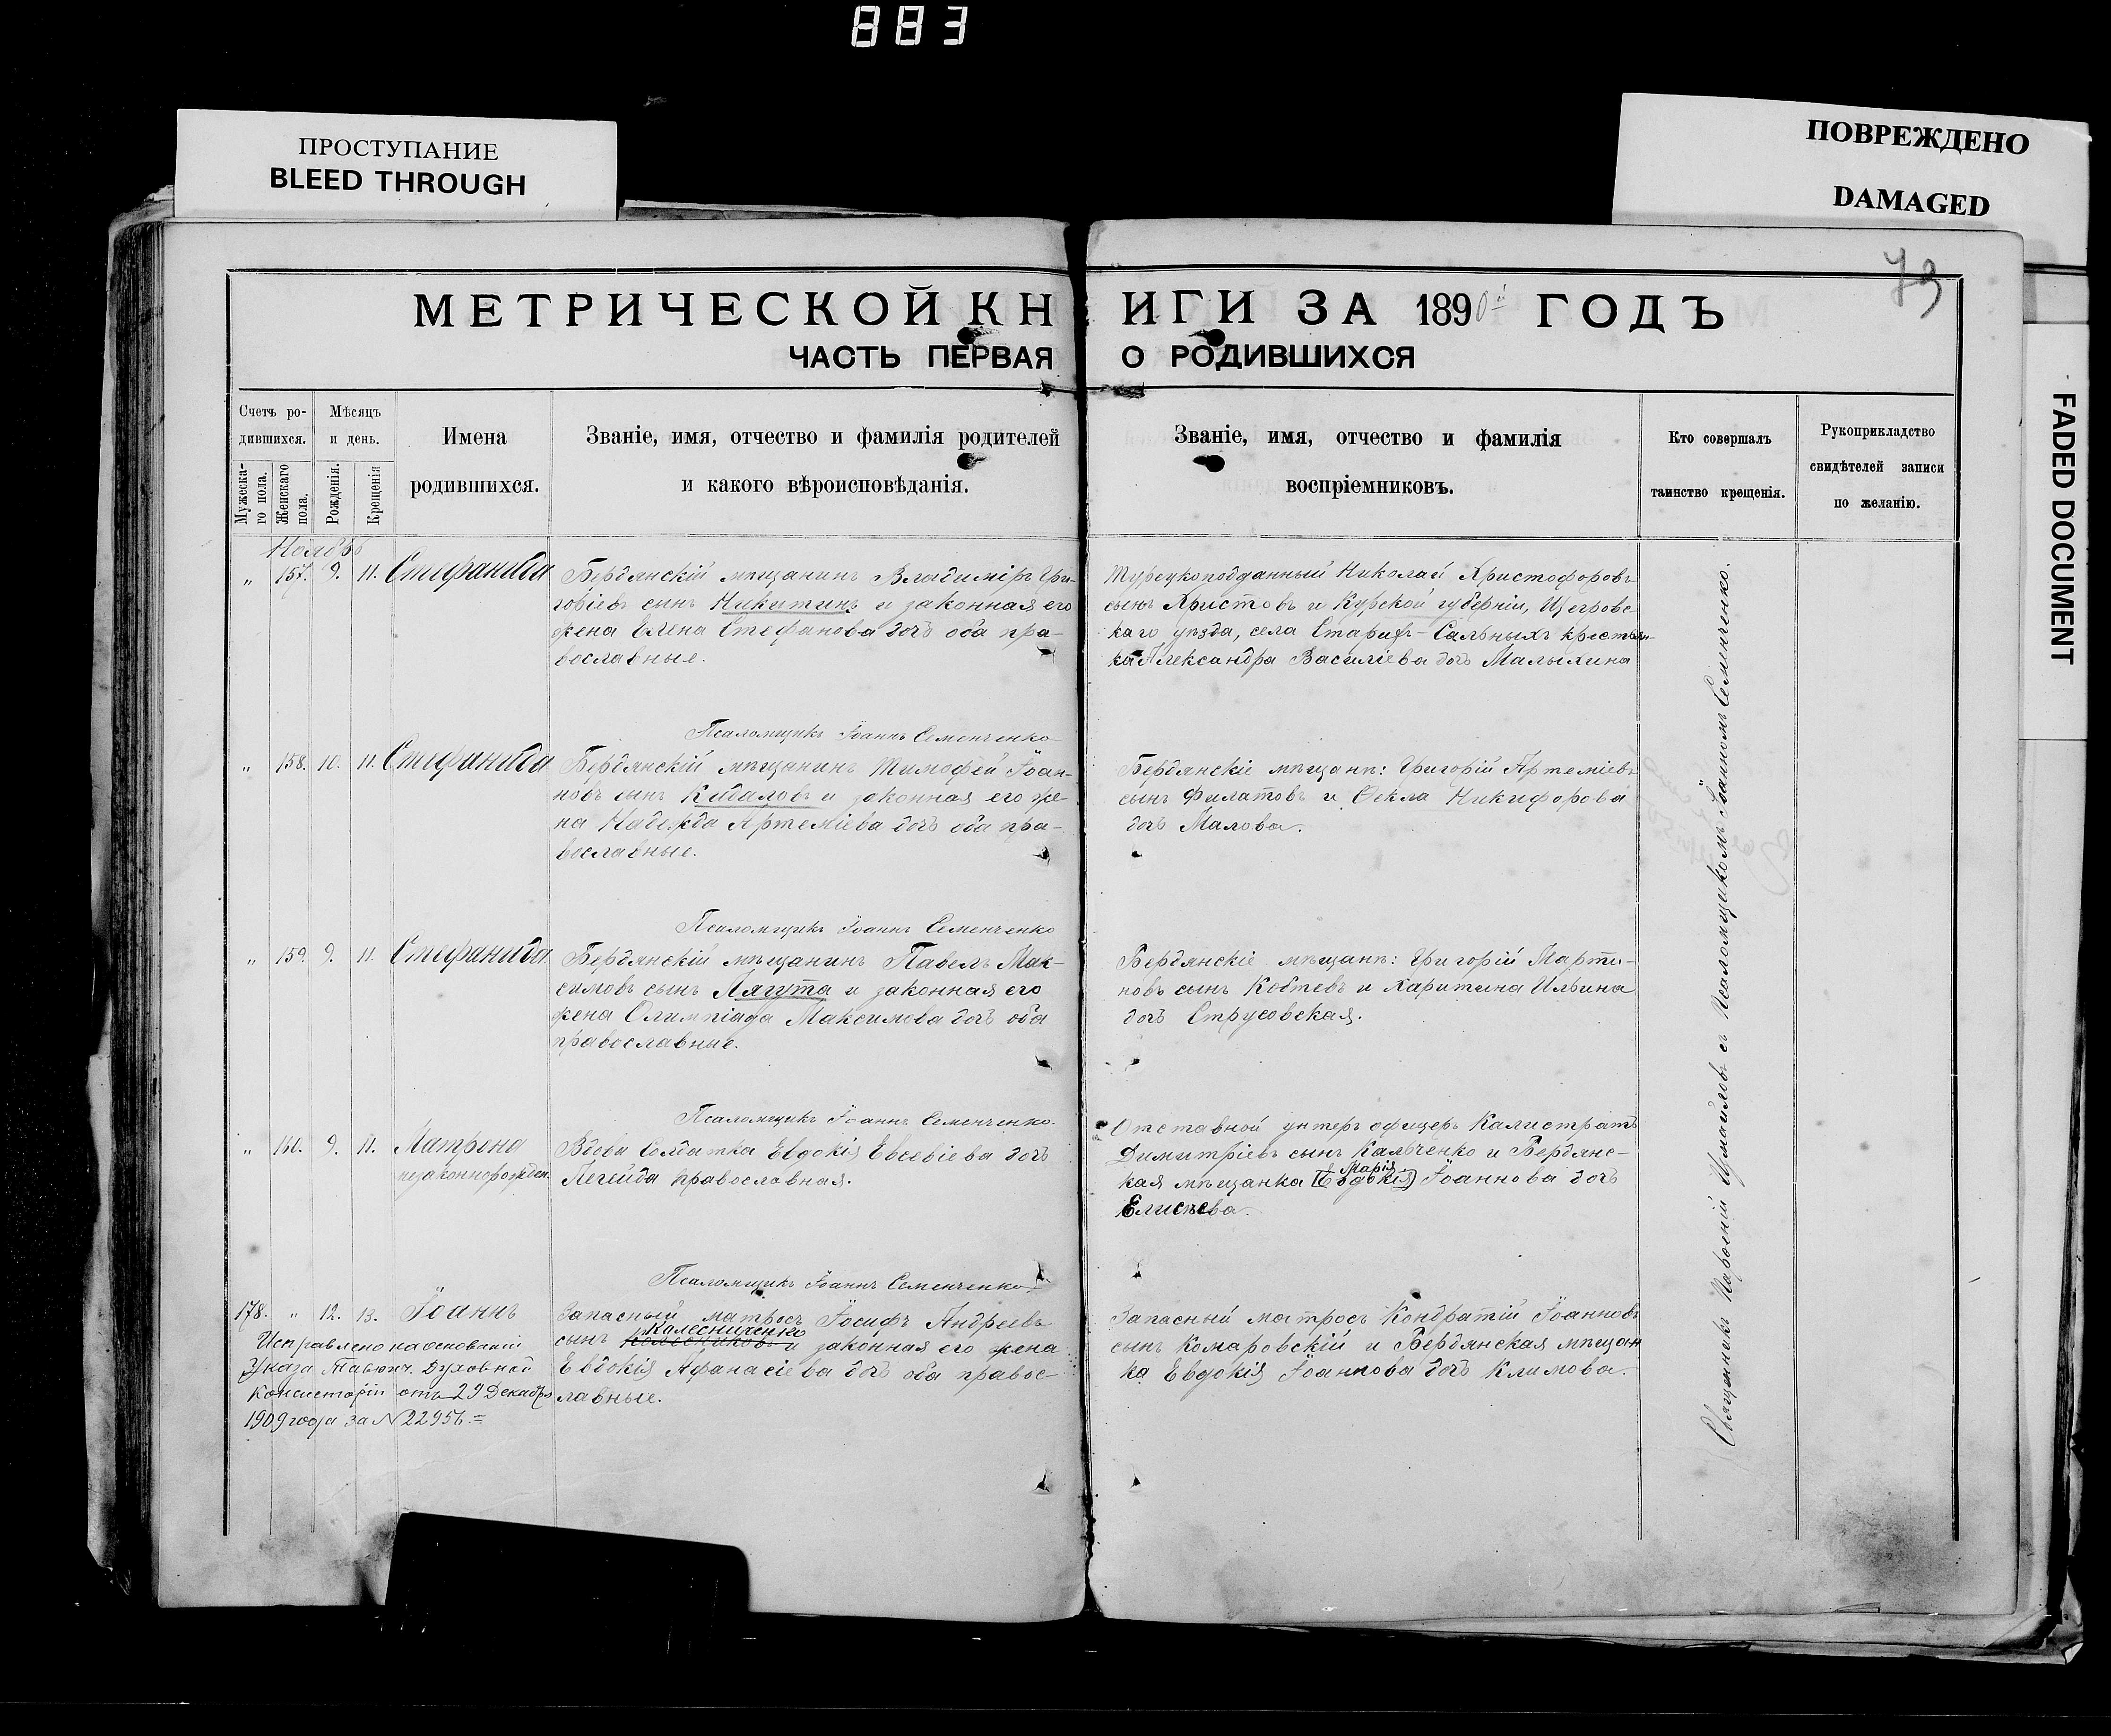 883
ПРОСТУПАНИЕ
BLEED THROUGH
ПОВРЕЖДЕНО
DAMAGED
FADED DOCUMENT
73
МЕТРИЧЕСКОЙ КНИГИ ЗА 1890й ГОДЪ
ЧАСТЬ ПЕРВАЯ О РОДИВШИХСЯ
Счетъ ро-
дившихся.
Мужеска-
го пола.
Женскаго
пола.
Мѣсяцъ
и день.
Рожденія.
Крещенія
Имена
родившихся.
Званіе, имя, отчество и фамилія родителей
и какого вѣроисповѣданія.
Званіе, имя, отчество и фамилія
воспріемниковъ.
Кто совершалъ
таинство крещенія.
Рукоприкладство
свидѣтелей записи
по желанію.
Ноябрь
„ 157. 9. 11. Стефанида
Бердянскій мѣщанинъ Владиміръ Гри-
горіевъ сынъ Никитинъ и законная его
жена Елена Стефанова дочь оба пра-
вославные.
Турецкоподданный Николай Христофоровъ
сынъ Христовъ и Курской губерніи, Щегровс-
каго уѣзда, села Старыхъ-Сальныхъ крестьян-
ка Александра Василіева дочь Малыхина
Псаломщикъ Іоаннъ Семенченко
„ 158. 10. 11. Стефанида
Бердянскій мѣщанинъ Тимофей Іоан-
новъ сынъ Кидаловъ и законная его же-
на Надежда Артеміева дочь оба пра-
вославные.
Бердянскіе мѣщане: Григорій Артеміевъ
сынъ Филатовъ и Ѳекла Никифорова
дочь Малова.
Псаломщикъ Іоаннъ Семенченко
„ 159. 9. 11. Стефанида
Бердянскій мѣщанинъ Павелъ Мак-
симовъ сынъ Лягута и законная его
жена Олимпіада Максимова дочь оба
православные.
Бердянскіе мѣщане: Григорій Марти-
новъ сынъ Ковтевъ и Харитина Ильина
дочь Струсовская.
Псаломщикъ Іоаннъ Семенченко.
„ 161. 9. 11. Матрона
незаконнорожден.
Вдова Солдатка Евдокія Евсевіева дочь
Легейда православная.
Отставной унтеръ офицеръ Калистратъ
Димитріевъ сынъ Кальченко и Бердянс-
Марія
кая мѣщанка (Евдокія) Іоаннова дочь
Елисѣева.
Псаломщикъ Іоаннъ Семенченко
178. „ 12. 13. Іоаннъ
Исправлено на основаніи
Указа Таврич. Духовной
Консисторіи отъ 29 Декабря
1909 года за № 22956.=
Запасный матросъ Іосифъ Андреевъ
Колесниченко
сынъ Колесниковъ и законная его жена
Евдокія Афанасіева дочь оба правос-
лавные.
Запасный матросъ Кондратій Іоанновъ
сынъ Комаровскій и Бердянская мѣщан
ка Евдокія Іоаннова дочь Климова.
Священникъ Измаилевъ съ Псаломщикомъ Іоанномъ Семенченко.